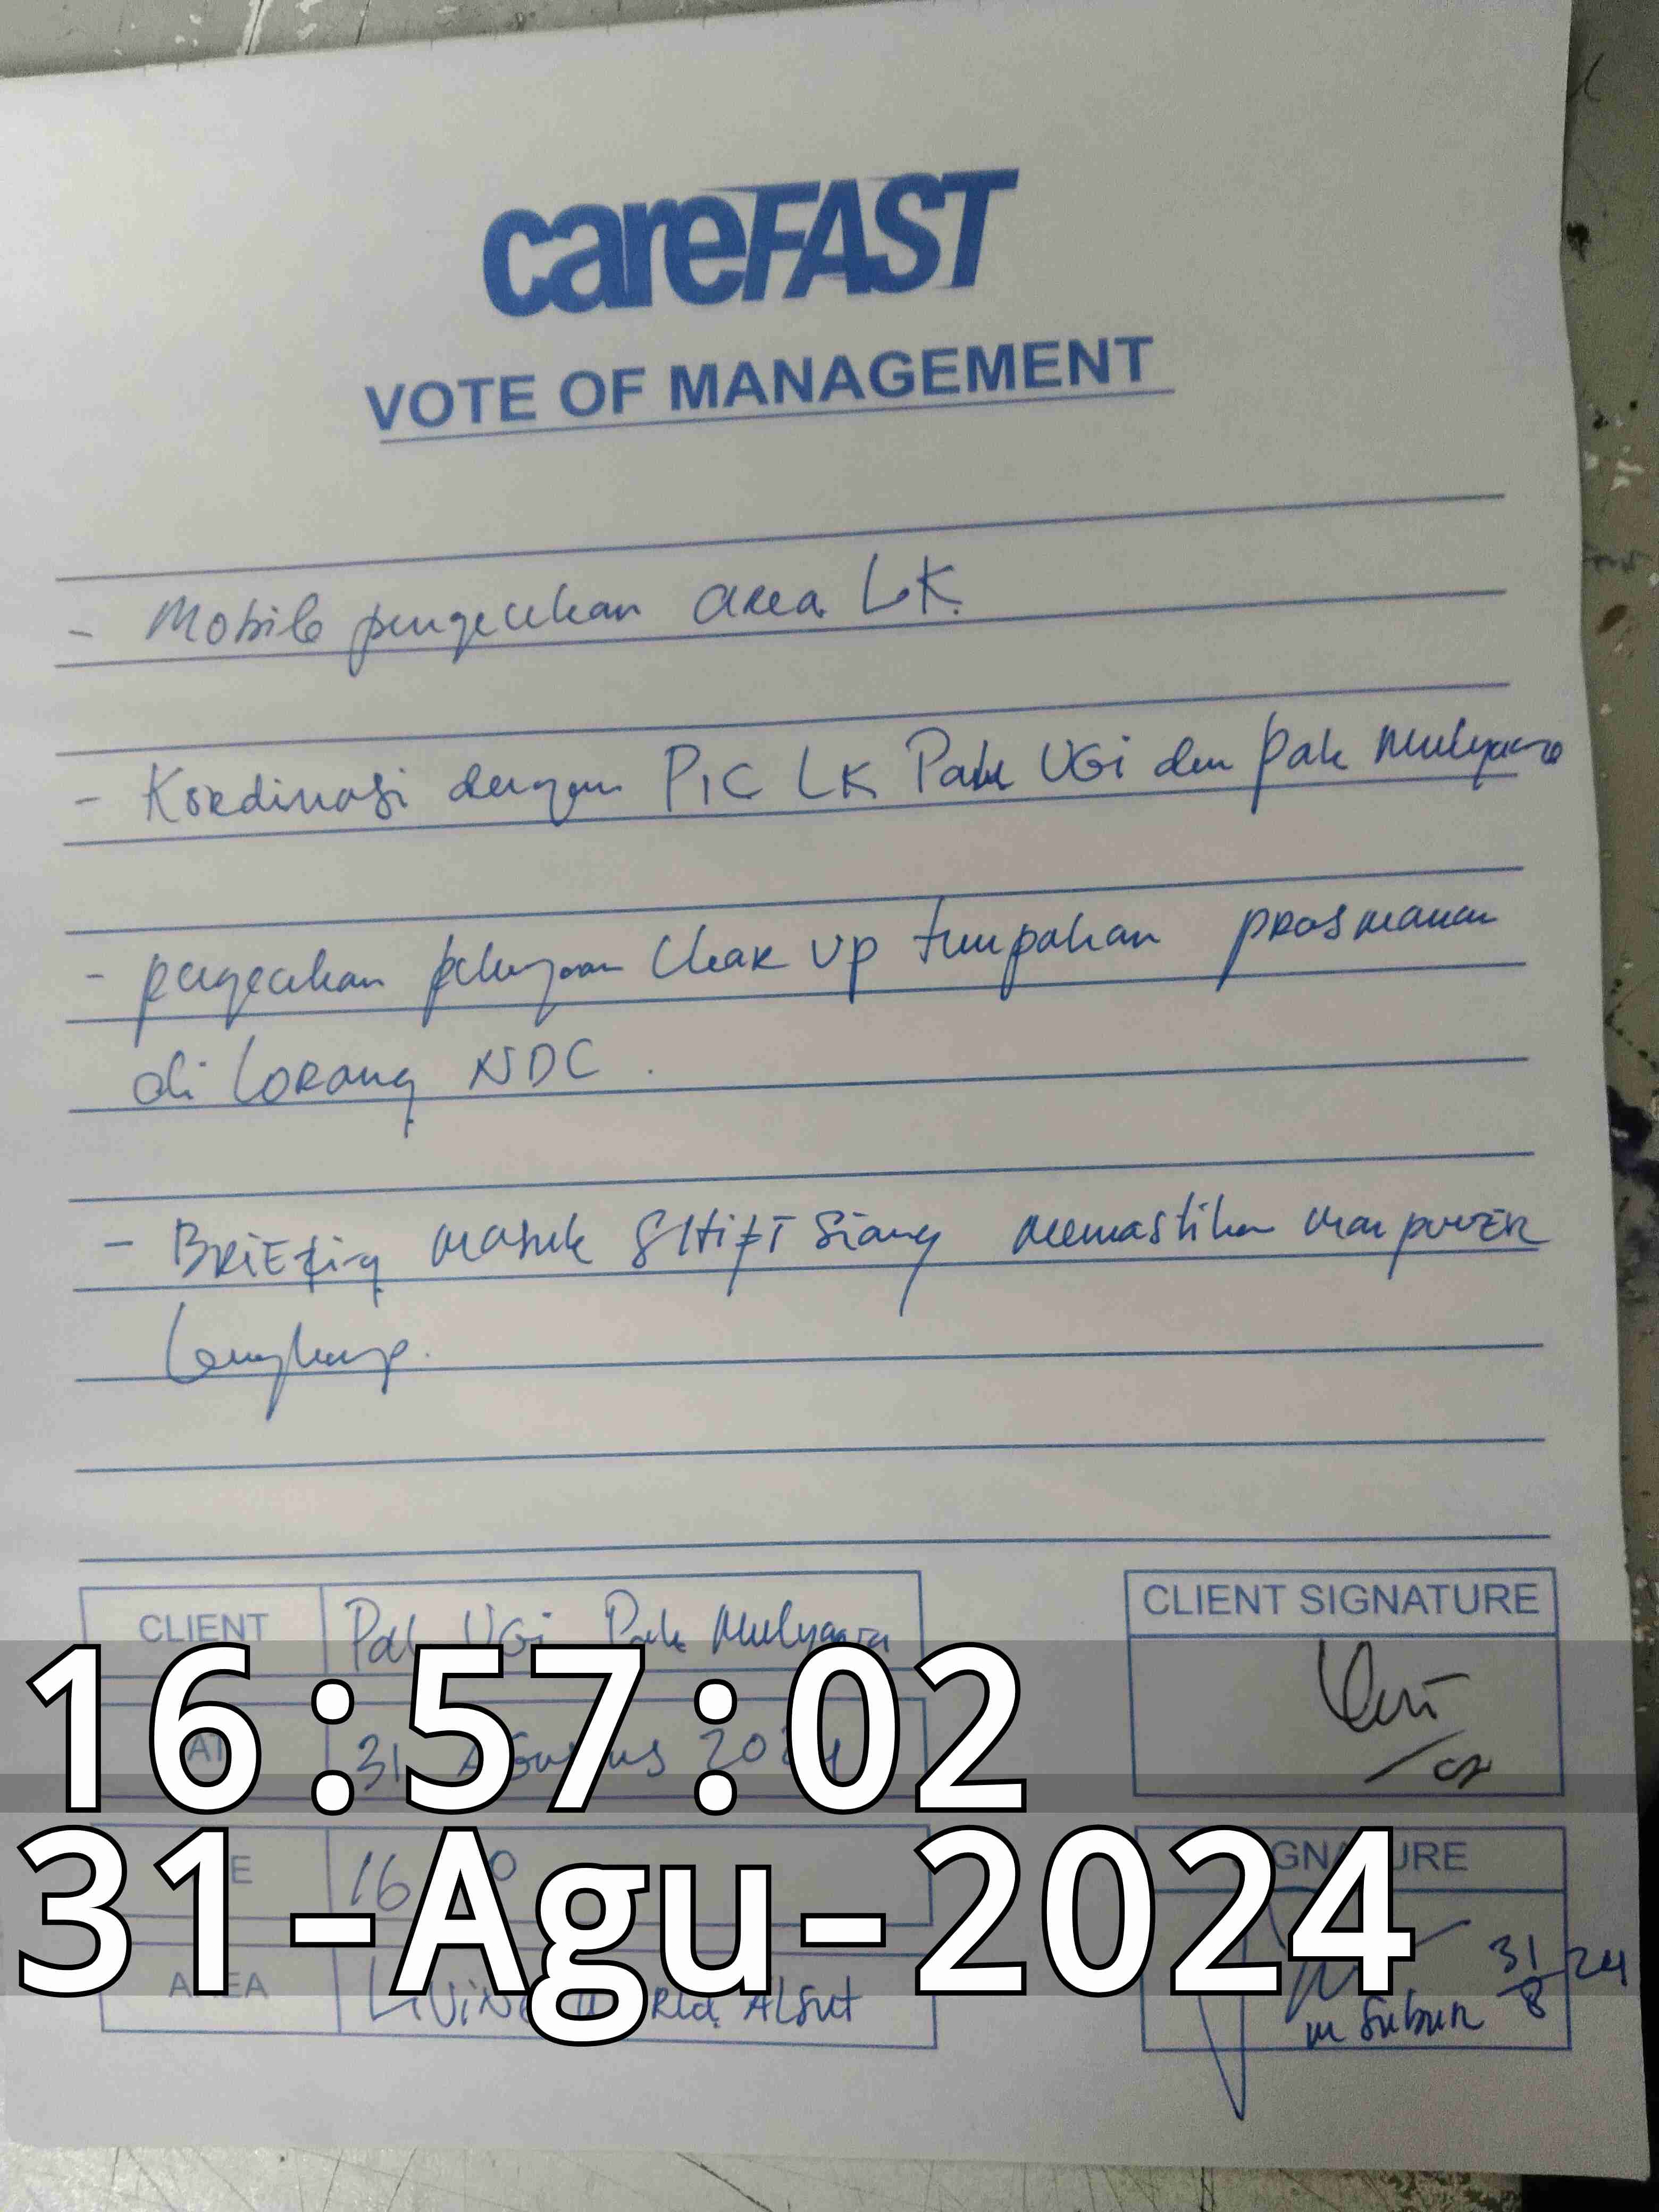 careFAST
VOTE OF MANAGEMENT
- Mobile pengecekan area LK.
- Kordinasi dengan PIC LK Pak UGi dan pak Mulyana
- pengecekan pekerjaan Clear UP tumpahan
di Lorang NDC.
- BRIEfing masuk SHifT Siang memastikan man power
Lengkap.
CLIENT
Pak UGi Pak Mulyana
CLIENT SIGNATURE
31 Agustus 2024
16:57:02
16
SIGNATURE
31-Agu-2024
AREA
LiViNG WoRLd ALSut
m Subur 31/8 24